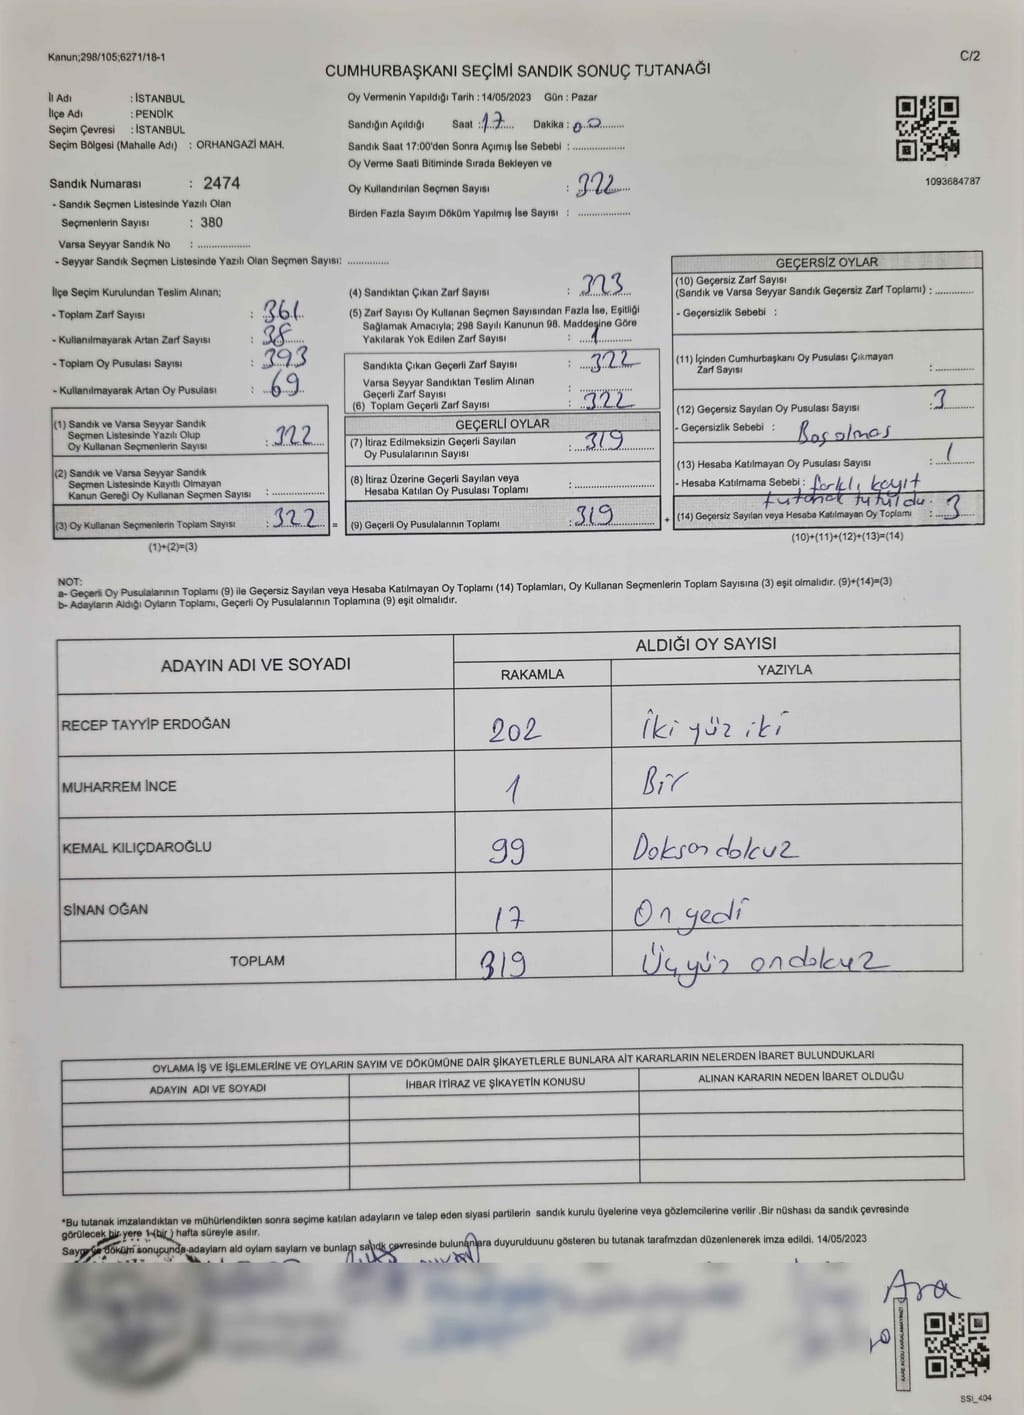 Kanun;298/105;6271/18-1
C/2
CUMHURBAŞKANI SEÇİMİ SANDIK SONUÇ TUTANAĞI
İl Adı : İSTANBUL
İlçe Adı : PENDİK
Seçim Çevresi : İSTANBUL
Seçim Bölgesi (Mahalle Adı) : ORHANGAZİ MAH.
Sandık Numarası : 2474
- Sandık Seçmen Listesinde Yazılı Olan
Seçmenlerin Sayısı : 380
Varsa Seyyar Sandık No : ..............
- Seyyar Sandık Seçmen Listesinde Yazılı Olan Seçmen Sayısı: ..............
Oy Vermenin Yapıldığı Tarih : 14/05/2023 Gün : Pazar
Sandığın Açıldığı Saat : 17 Dakika : 00
Sandık Saat 17:00'den Sonra Açımış İse Sebebi : ..............
Oy Verme Saati Bitiminde Sırada Bekleyen ve
Oy Kullandırılan Seçmen Sayısı : 322
Birden Fazla Sayım Döküm Yapılmış İse Sayısı : ..............
1093684787
İlçe Seçim Kurulundan Teslim Alınan;
- Toplam Zarf Sayısı : 361
- Kullanılmayarak Artan Zarf Sayısı : 38
- Toplam Oy Pusulası Sayısı : 393
- Kullanılmayarak Artan Oy Pusulası : 69
(1) Sandık ve Varsa Seyyar Sandık
Seçmen Listesinde Yazılı Olup
Oy Kullanan Seçmenlerin Sayısı : 322
(2) Sandık ve Varsa Seyyar Sandık
Seçmen Listesinde Kayıtlı Olmayan
Kanun Gereği Oy Kullanan Seçmen Sayısı : ..............
(3) Oy Kullanan Seçmenlerin Toplam Sayısı : 322 =
(1)+(2)=(3)
(4) Sandıktan Çıkan Zarf Sayısı : 323
(5) Zarf Sayısı Oy Kullanan Seçmen Sayısından Fazla İse, Eşitliği
Sağlamak Amacıyla; 298 Sayılı Kanunun 98. Maddesine Göre
Yakılarak Yok Edilen Zarf Sayısı : 1
Sandıkta Çıkan Geçerli Zarf Sayısı : 322
Varsa Seyyar Sandıktan Teslim Alınan
Geçerli Zarf Sayısı : ..............
(6) Toplam Geçerli Zarf Sayısı : 322
GEÇERLİ OYLAR
(7) İtiraz Edilmeksizin Geçerli Sayılan
Oy Pusulalarının Sayısı : 319
(8) İtiraz Üzerine Geçerli Sayılan veya
Hesaba Katılan Oy Pusulası Toplamı : ..............
(9) Geçerli Oy Pusulalarının Toplamı : 319 +
GEÇERSİZ OYLAR
(10) Geçersiz Zarf Sayısı
(Sandık ve Varsa Seyyar Sandık Geçersiz Zarf Toplamı) : ..............
- Geçersizlik Sebebi :
(11) İçinden Cumhurbaşkanı Oy Pusulası Çıkmayan
Zarf Sayısı : ..............
(12) Geçersiz Sayılan Oy Pusulası Sayısı : 3
- Geçersizlik Sebebi : Boş olması
(13) Hesaba Katılmayan Oy Pusulası Sayısı : 1
- Hesaba Katılmama Sebebi : farklı kayıt
tutanak tutuldu.
(14) Geçersiz Sayılan veya Hesaba Katılmayan Oy Toplamı : 3
(10)+(11)+(12)+(13)=(14)
NOT:
a- Geçerli Oy Pusulalarının Toplamı (9) ile Geçersiz Sayılan veya Hesaba Katılmayan Oy Toplamı (14) Toplamları, Oy Kullanan Seçmenlerin Toplam Sayısına (3) eşit olmalıdır. (9)+(14)=(3)
b- Adayların Aldığı Oyların Toplamı, Geçerli Oy Pusulalarının Toplamına (9) eşit olmalıdır.
ADAYIN ADI VE SOYADI
ALDIĞI OY SAYISI
RAKAMLA YAZIYLA
RECEP TAYYİP ERDOĞAN 202 İki yüz iki
MUHARREM İNCE 1 Bir
KEMAL KILIÇDAROĞLU 99 Doksan dokuz
SİNAN OĞAN 17 On yedi
TOPLAM 319 Üç yüz on dokuz
OYLAMA İŞ VE İŞLEMLERİNE VE OYLARIN SAYIM VE DÖKÜMÜNE DAİR ŞİKAYETLERLE BUNLARA AİT KARARLARIN NELERDEN İBARET BULUNDUKLARI
ADAYIN ADI VE SOYADI İHBAR İTİRAZ VE ŞİKAYETİN KONUSU ALINAN KARARIN NEDEN İBARET OLDUĞU
*Bu tutanak imzalandıktan ve mühürlendikten sonra seçime katılan adayların ve talep eden siyasi partilerin sandık kurulu üyelerine veya gözlemcilerine verilir .Bir nüshası da sandık çevresinde
görülecek bir yere 1 (bir ) hafta süreyle asılır.
döküm sonuçunda adayların ald oylam sayların ve bunların sandk çevresinde bulunanlara duyurulduunu gösteren bu tutanak tarafmzdan düzenlenerek imza edildi. 14/05/2023
Ara
SSİ_404